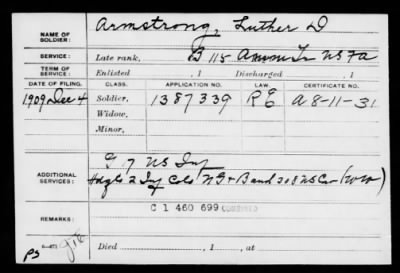 NAME OF SOLDIER: Armstrong, Luther D
SERVICE: Late rank, B 115 Ammn Tr US FA
TERM OF SERVICE: Enlisted , 1 Discharged , 1
DATE OF FILING. CLASS. APPLICATION NO. LAW. CERTIFICATE NO.
1909 Dec 4 Soldier, 1387339 A 8-11-31
Widow,
Minor,
ADDITIONAL SERVICES: G 7 US Inf
2 Inf Colo NG & Band 308 US Cav (WW)
REMARKS: C 1 460 699 COMBINED
Died , 1 , at